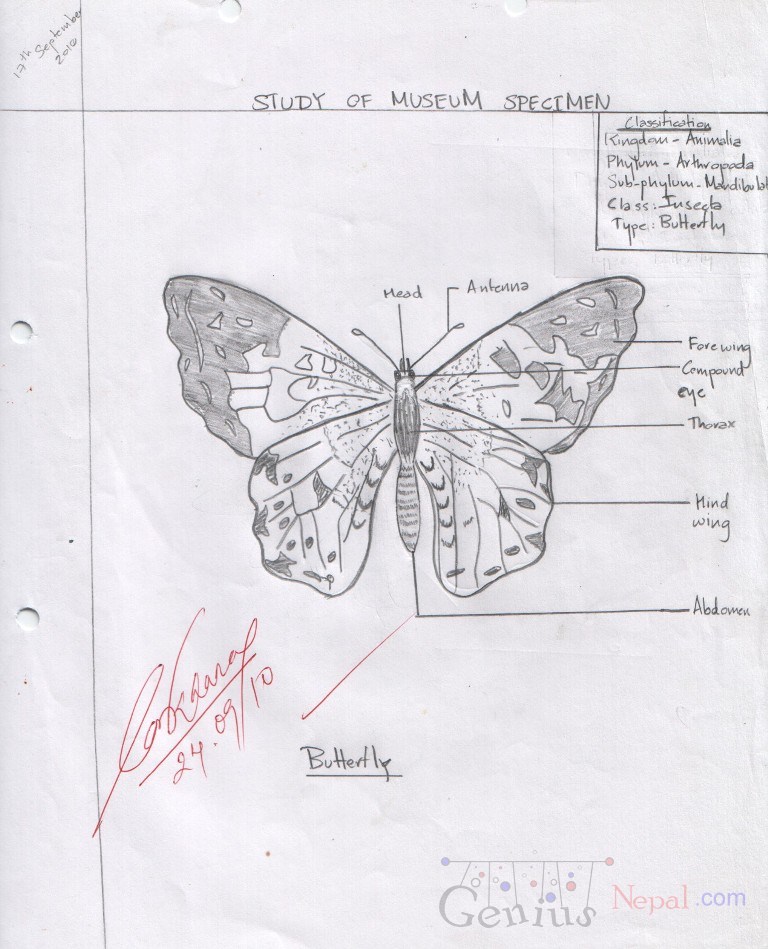 17th September
2010
STUDY OF MUSEUM SPECIMEN
Classification
Kingdom - Animalia
Phylum - Arthropoda
Sub-phylum - Mandibulat
Class: Insecta
Type: Butterfly
Head
Antenna
Fore wing
Compound
eye
Thorax
Hind
wing
Abdomen
24.09/10
Butterfly
Genius Nepal.com